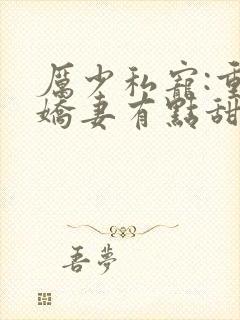 厲少私寵:重
嬌妻有點甜
吾夢